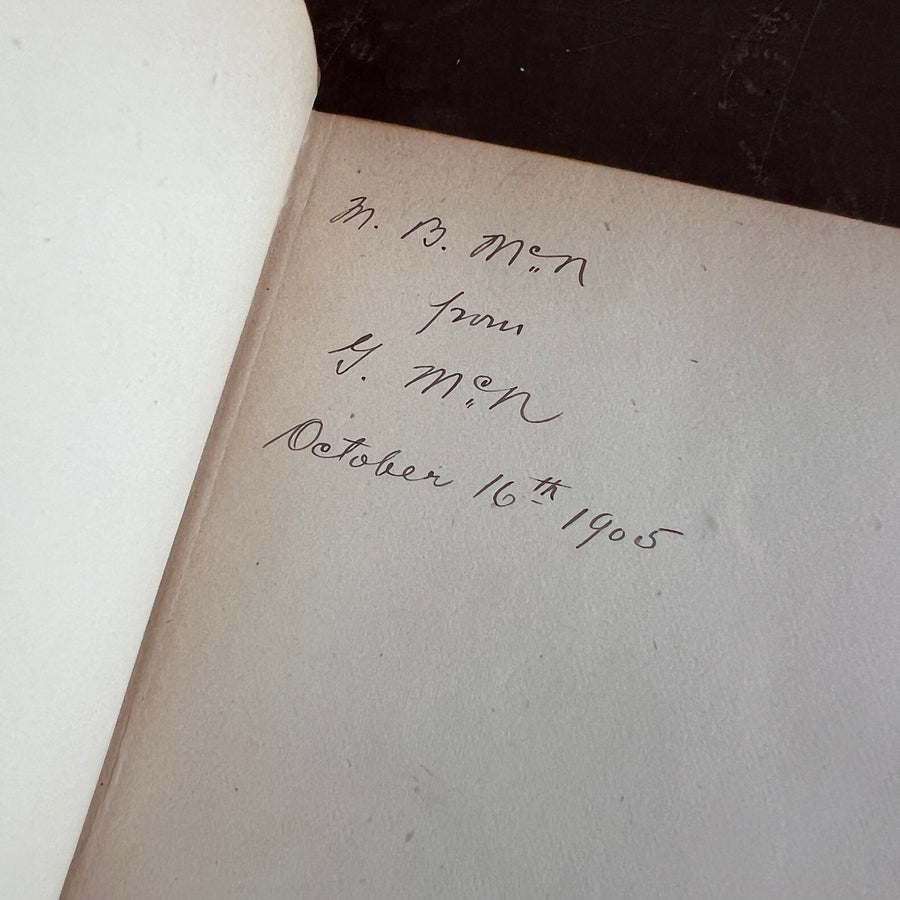 M. B. McN
from
G. McN
October 16th 1905